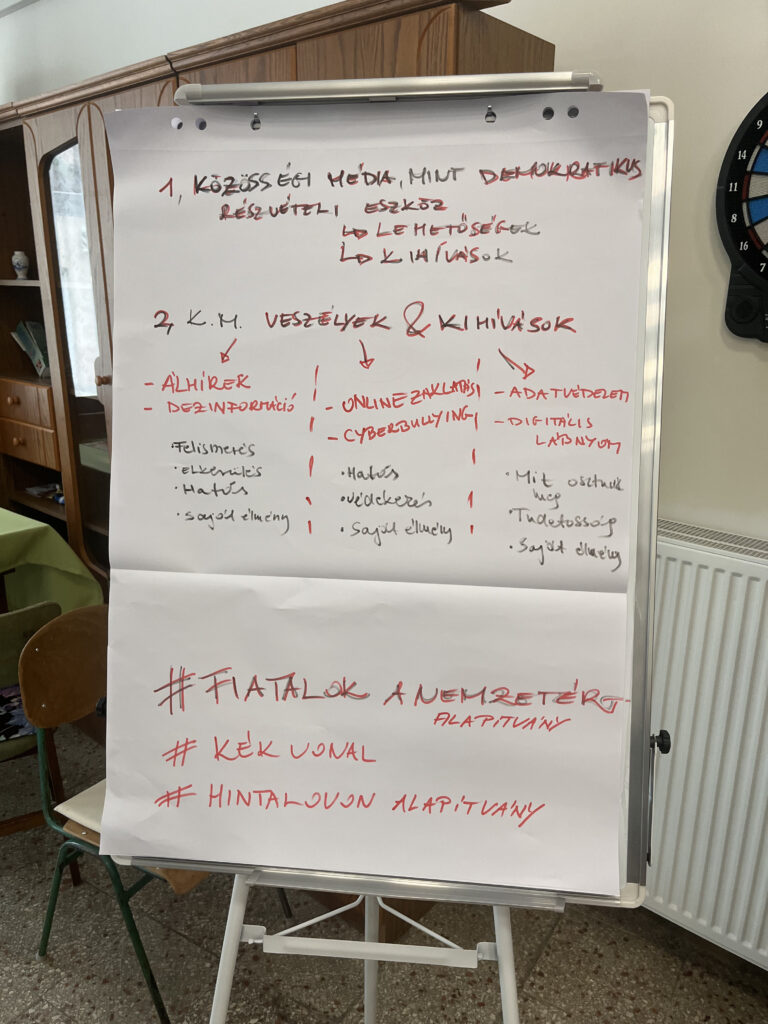 1, KÖZÖSSÉGI MÉDIA, MINT DEMOKRATIKUS
RÉSZVÉTELI ESZKÖZ
↳ LEHETŐSÉGEK
↳ KIHÍVÁSOK
2, K.M. VESZÉLYEK & KIHÍVÁSOK
- ÁLHÍREK
- DEZINFORMÁCIÓ
• Felismerés
• elkerülés
• Hatás
• saját élmény
- ONLINE ZAKLATÁS
- CYBERBULLYING
• Hatás
• védekezés
• Saját élmény
- ADATVÉDELEM
- DIGITÁLIS
LÁBNYOM
• Mit osztunk
meg
• Tudatosság
• Saját élmény
# FIATALOK A NEMZETÉRT
ALAPÍTVÁNY
# KÉK VONAL
# HINTALOVON ALAPÍTVÁNY
9
14
11
8
16
7